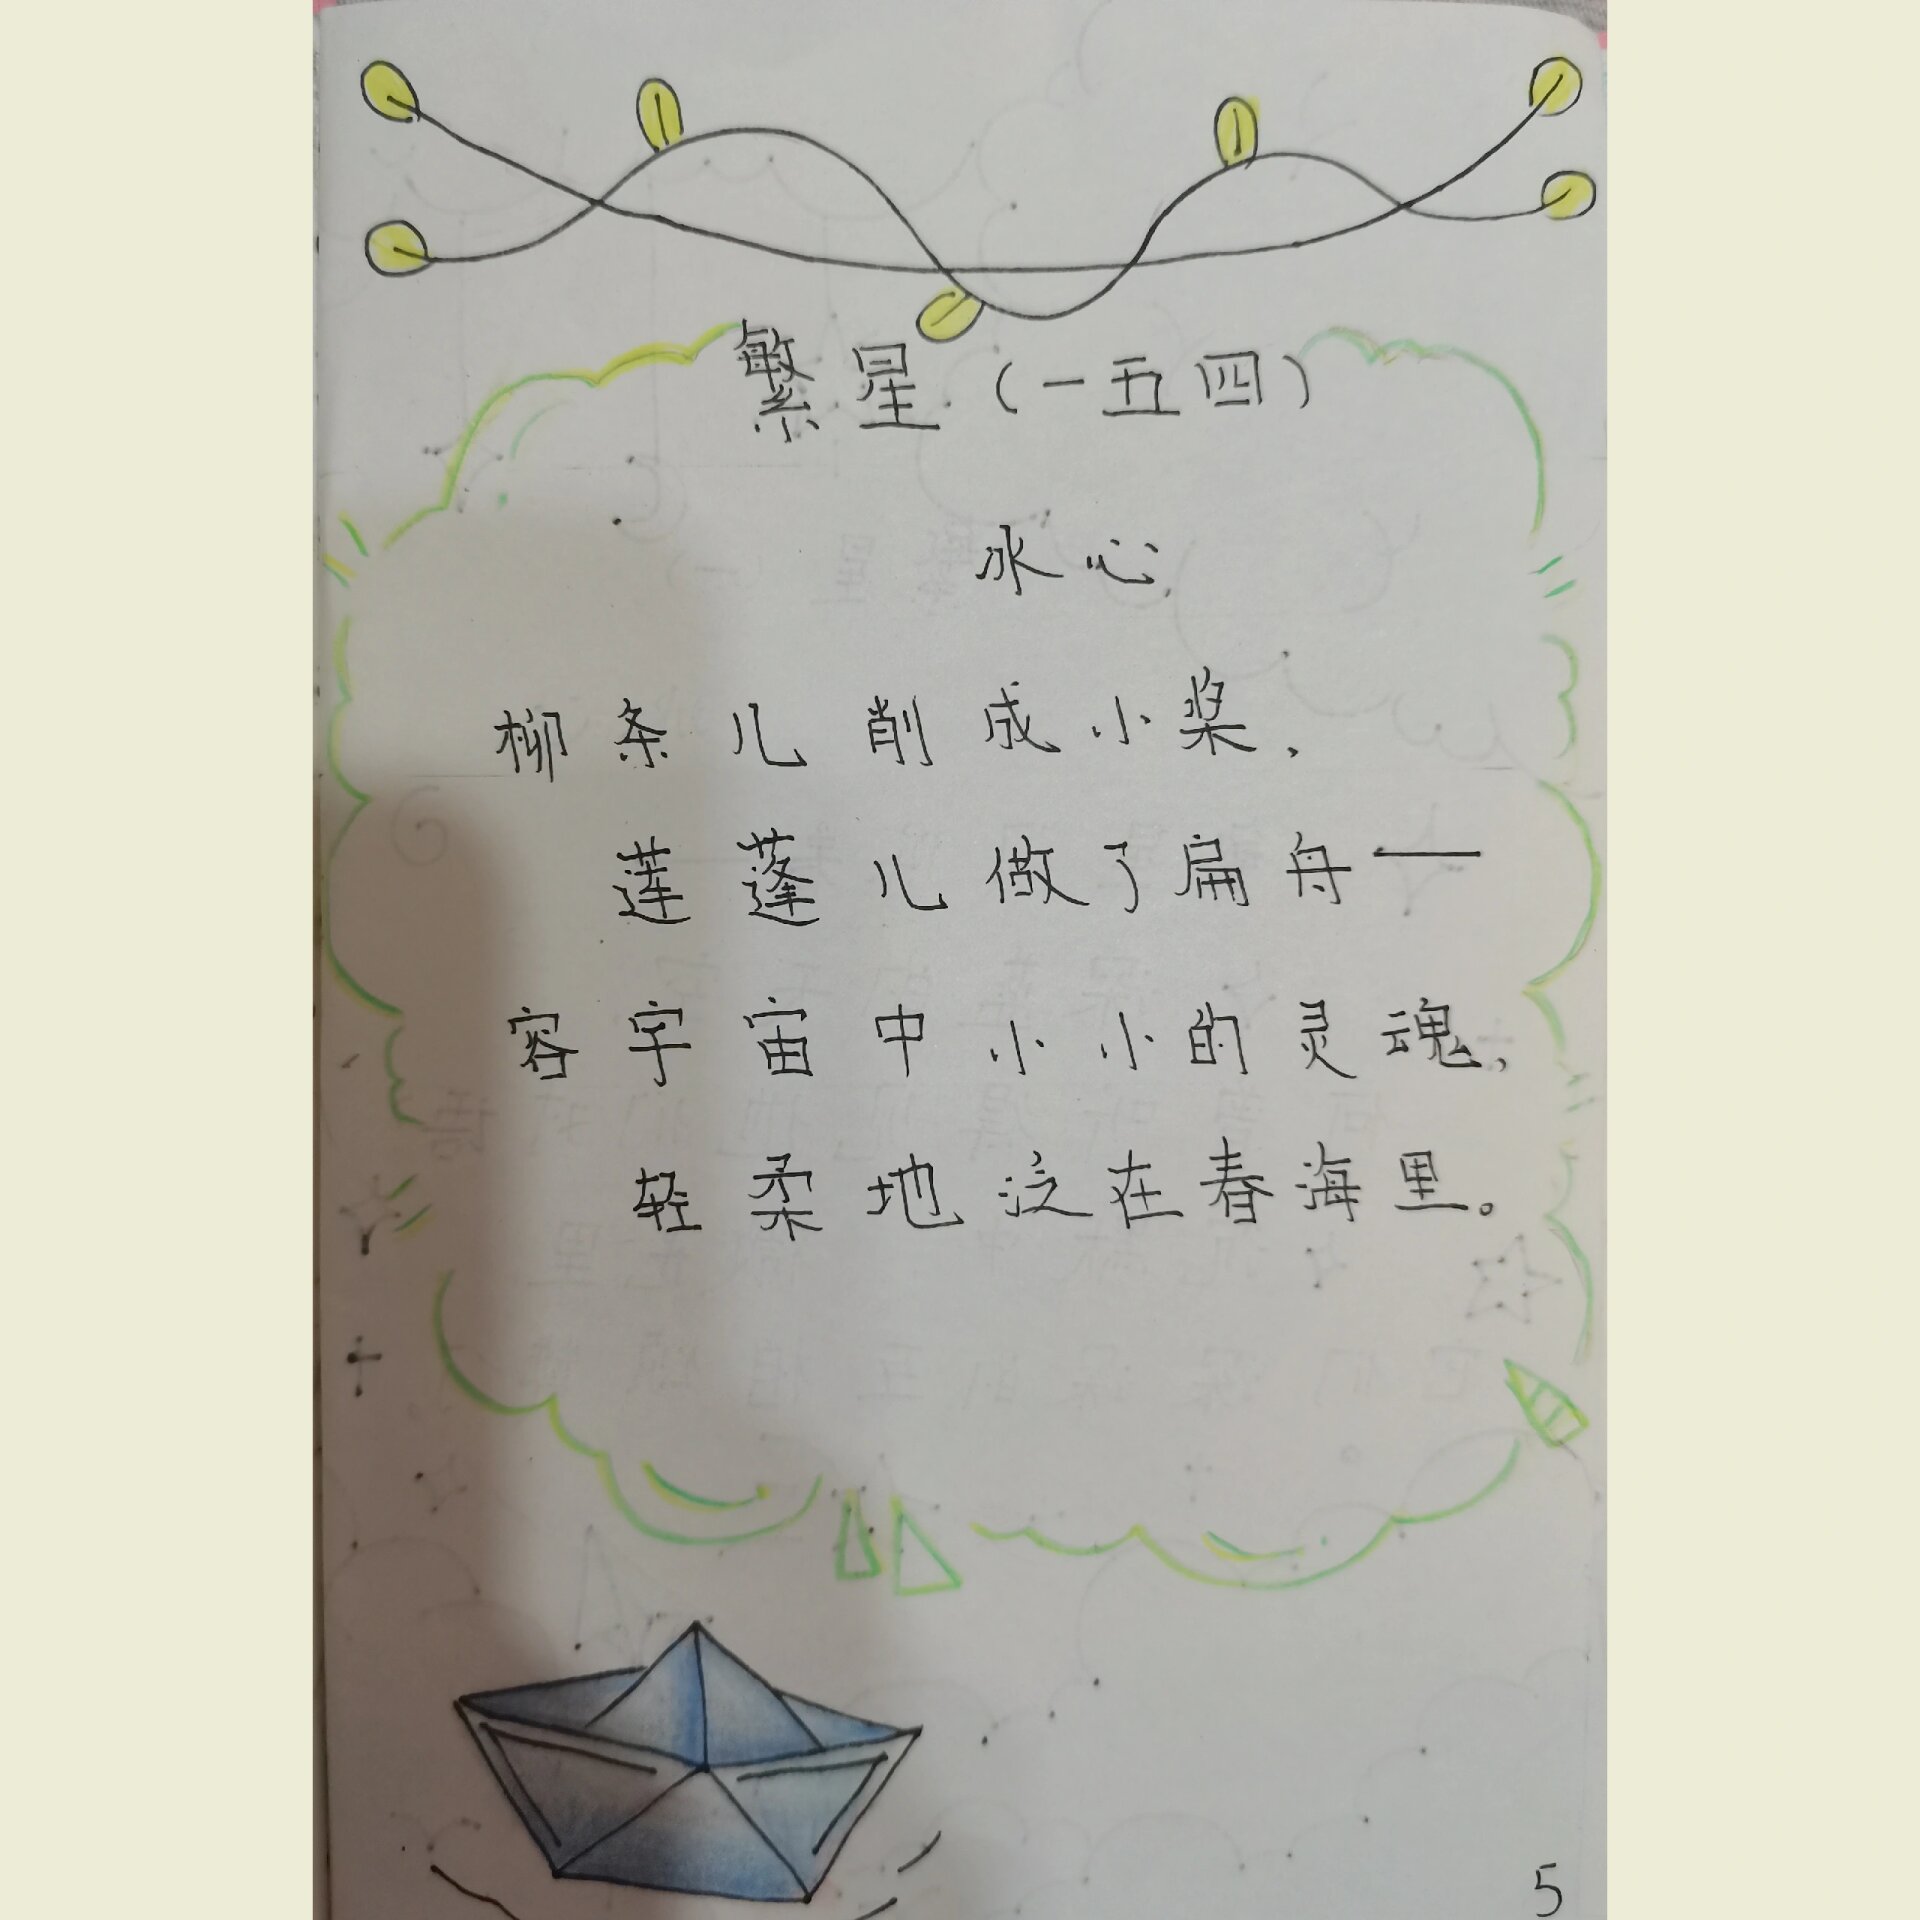 繁星（一五四）
冰心
柳条儿削成小桨，
莲蓬儿做了扁舟——
容宇宙中小小的灵魂，
轻柔地泛在春海里。
5